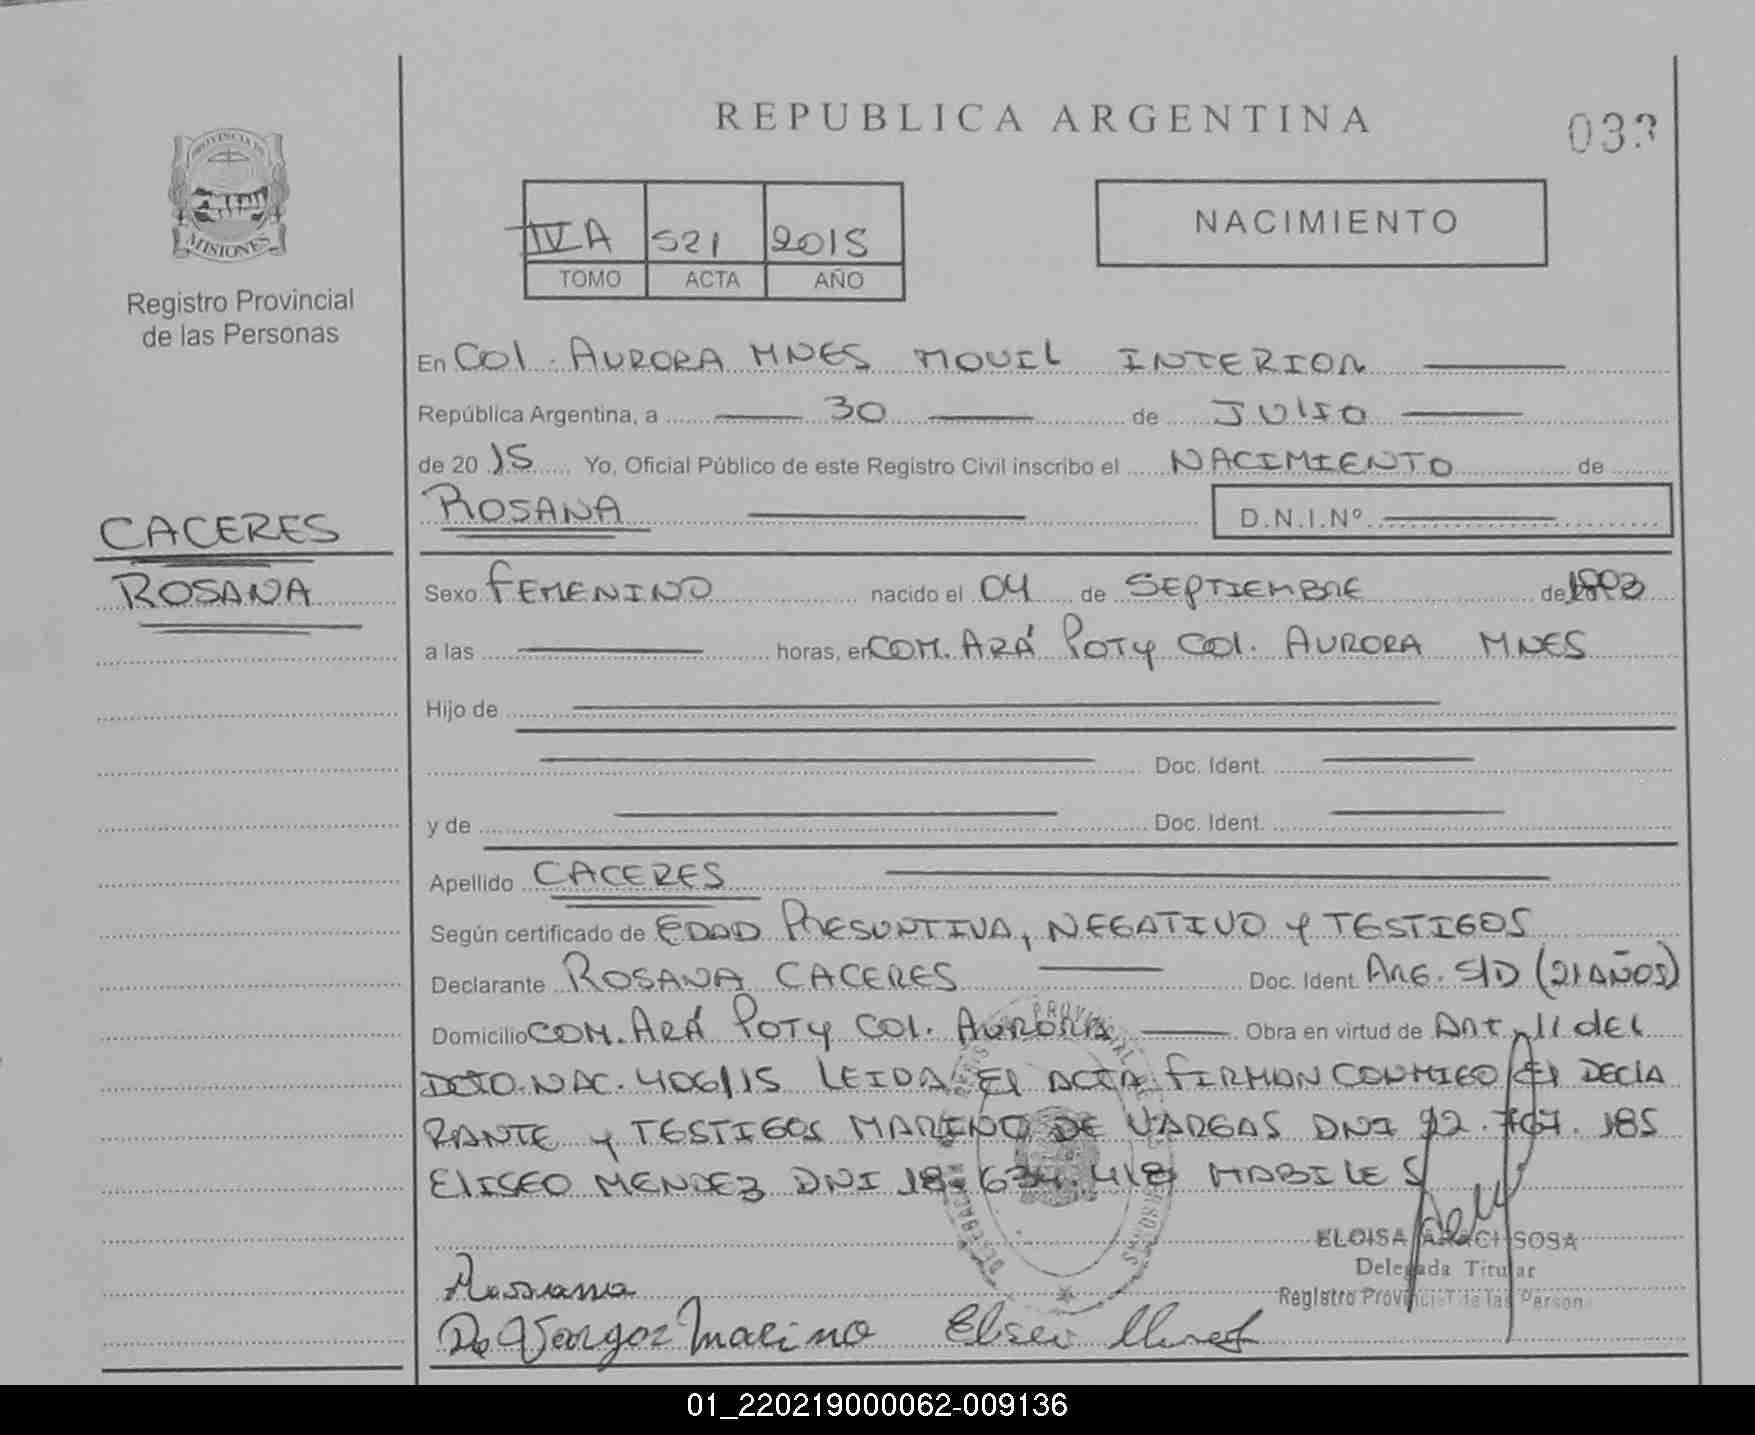 REPUBLICA ARGENTINA
03
PROVINCIA DE
MISIONES
Registro Provincial
de las Personas
IV A 521 2015
TOMO ACTA AÑO
NACIMIENTO
En Col. AURORA MNES MOVIL INTERIOR
República Argentina, a 30 de JULIO
de 2015 Yo, Oficial Público de este Registro Civil inscribo el NACIMIENTO de
ROSANA D.N.I.Nº
CACERES
ROSANA
Sexo FEMENINO nacido el 04 de SEPTIEMBRE de
a las horas, en COM. ARÁ POTY COL. AURORA MNES
Hijo de
Doc. Ident.
y de Doc. Ident.
Apellido CACERES
Según certificado de EDAD PRESUNTIVA, NEGATIVO y TESTIGOS
Declarante ROSANA CACERES Doc. Ident. ARG. S/D (21 AÑOS)
Domicilio COM. ARÁ POTY COL. AURORA Obra en virtud de ART. 11 del
DCTO. NAC. 406/15 LEIDA El ACTA FIRMAN CONMIGO El DECLA
RANTE y TESTIGOS MARINO DE VARGAS DNI 92.767.185
ELISEO MENDEZ DNI 18.634.418 HABILES
ELOISA ARACI SOSA
Delegada Titular
Registro Provincial de las Person
Rossana
De Vargaz Marino Eliseo
01_220219000062-009136